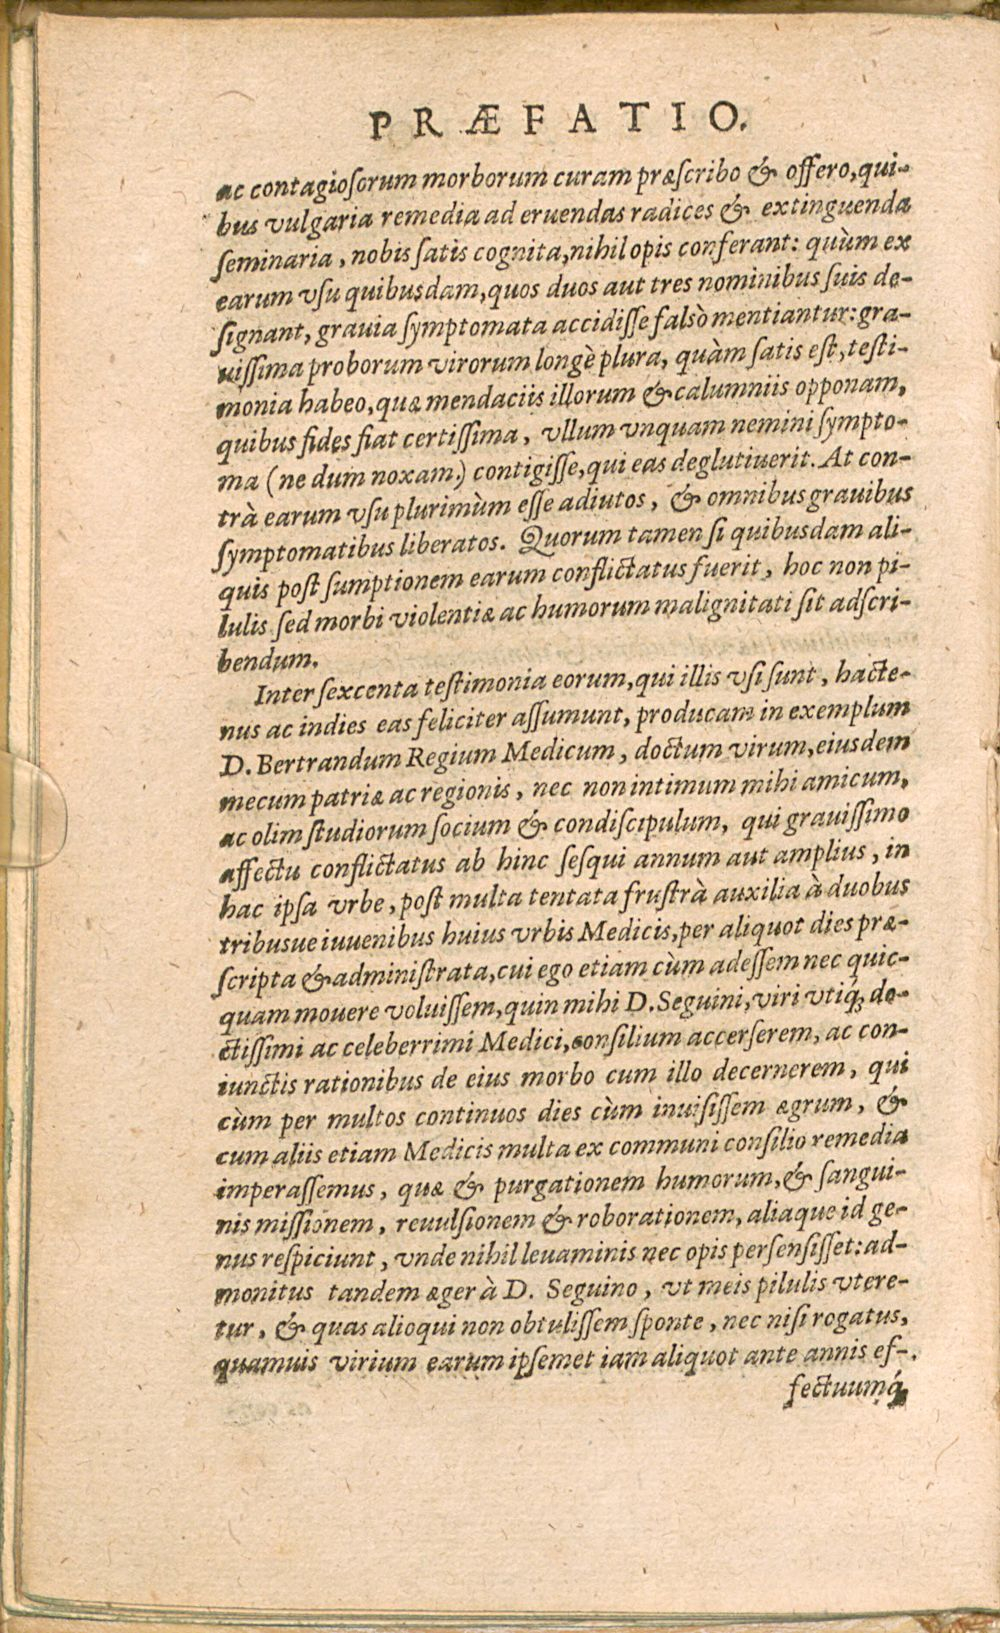 PRÆFATIO.
ac contagioſorum morborum curam præſcribo & offero, qui-
bus vulgaria remedia ad eruendas radices & extinguenda
ſeminaria, nobis ſatis cognita, nihil opis conferant: quùm ex
earum vſu quibusdam, quos duos aut tres nominibus ſuis de-
ſignant, grauia ſymptomata accidiſſe falsò mentiantur: gra-
uiſſima proborum virorum longè plura, quàm ſatis eſt, teſti-
monia habeo, quæ mendaciis illorum & calumniis opponam,
quibus fides fiat certiſſima, vllum vnquam nemini ſympto-
ma (ne dum noxam.) contigiſſe, qui eas deglutiuerit. At con-
trà earum vſu plurimùm eſſe adiutos, & omnibus grauibus
ſymptomatibus liberatos. Quorum tamen ſi quibusdam ali-
quis poſt ſumptionem earum conflictatus fuerit, hoc non pi-
lulis ſed morbi violentiæ ac humorum malignitati ſit adſcri-
bendum.
Inter ſexcenta teſtimonia eorum, qui illis vſi ſunt, hacte-
nus ac indies eas feliciter aſſumunt, producam in exemplum
D. Bertrandum Regium Medicum, doctum virum, eiusdem
mecum patriæ ac regionis, nec non intimum mihi amicum,
ac olim ſtudiorum ſocium & condiſcipulum, qui grauiſſimo
affectu conflictatus ab hinc ſeſqui annum aut amplius, in
hac ipſa vrbe, poſt multa tentata fruſtrà auxilia à duobus
tribusue iuuenibus huius vrbis Medicis, per aliquot dies præ-
ſcripta & adminiſtrata, cui ego etiam cùm adeſſem nec quic-
quam mouere voluiſſem, quin mihi D. Seguini, viri vtiq́; do-
ctiſſimi ac celeberrimi Medici, conſilium accerſerem, ac con-
iunctis rationibus de eius morbo cum illo decernerem, qui
cùm per multos continuos dies cùm inuiſiſſem ægrum, &
cum aliis etiam Medicis multa ex communi conſilio remedia
imperaſſemus, quæ & purgationem humorum, & ſangui-
nis miſſionem, reuulſionem & roborationem, aliaque id ge-
nus reſpiciunt, vnde nihil leuaminis nec opis perſenſiſſet: ad-
monitus tandem æger à D. Seguino, vt meis pilulis vtere-
tur, & quas alioqui non obtuliſſem ſponte, nec niſi rogatus,
quamuis virium earum ipſemet iam aliquot ante annis ef-
fectuumq́;